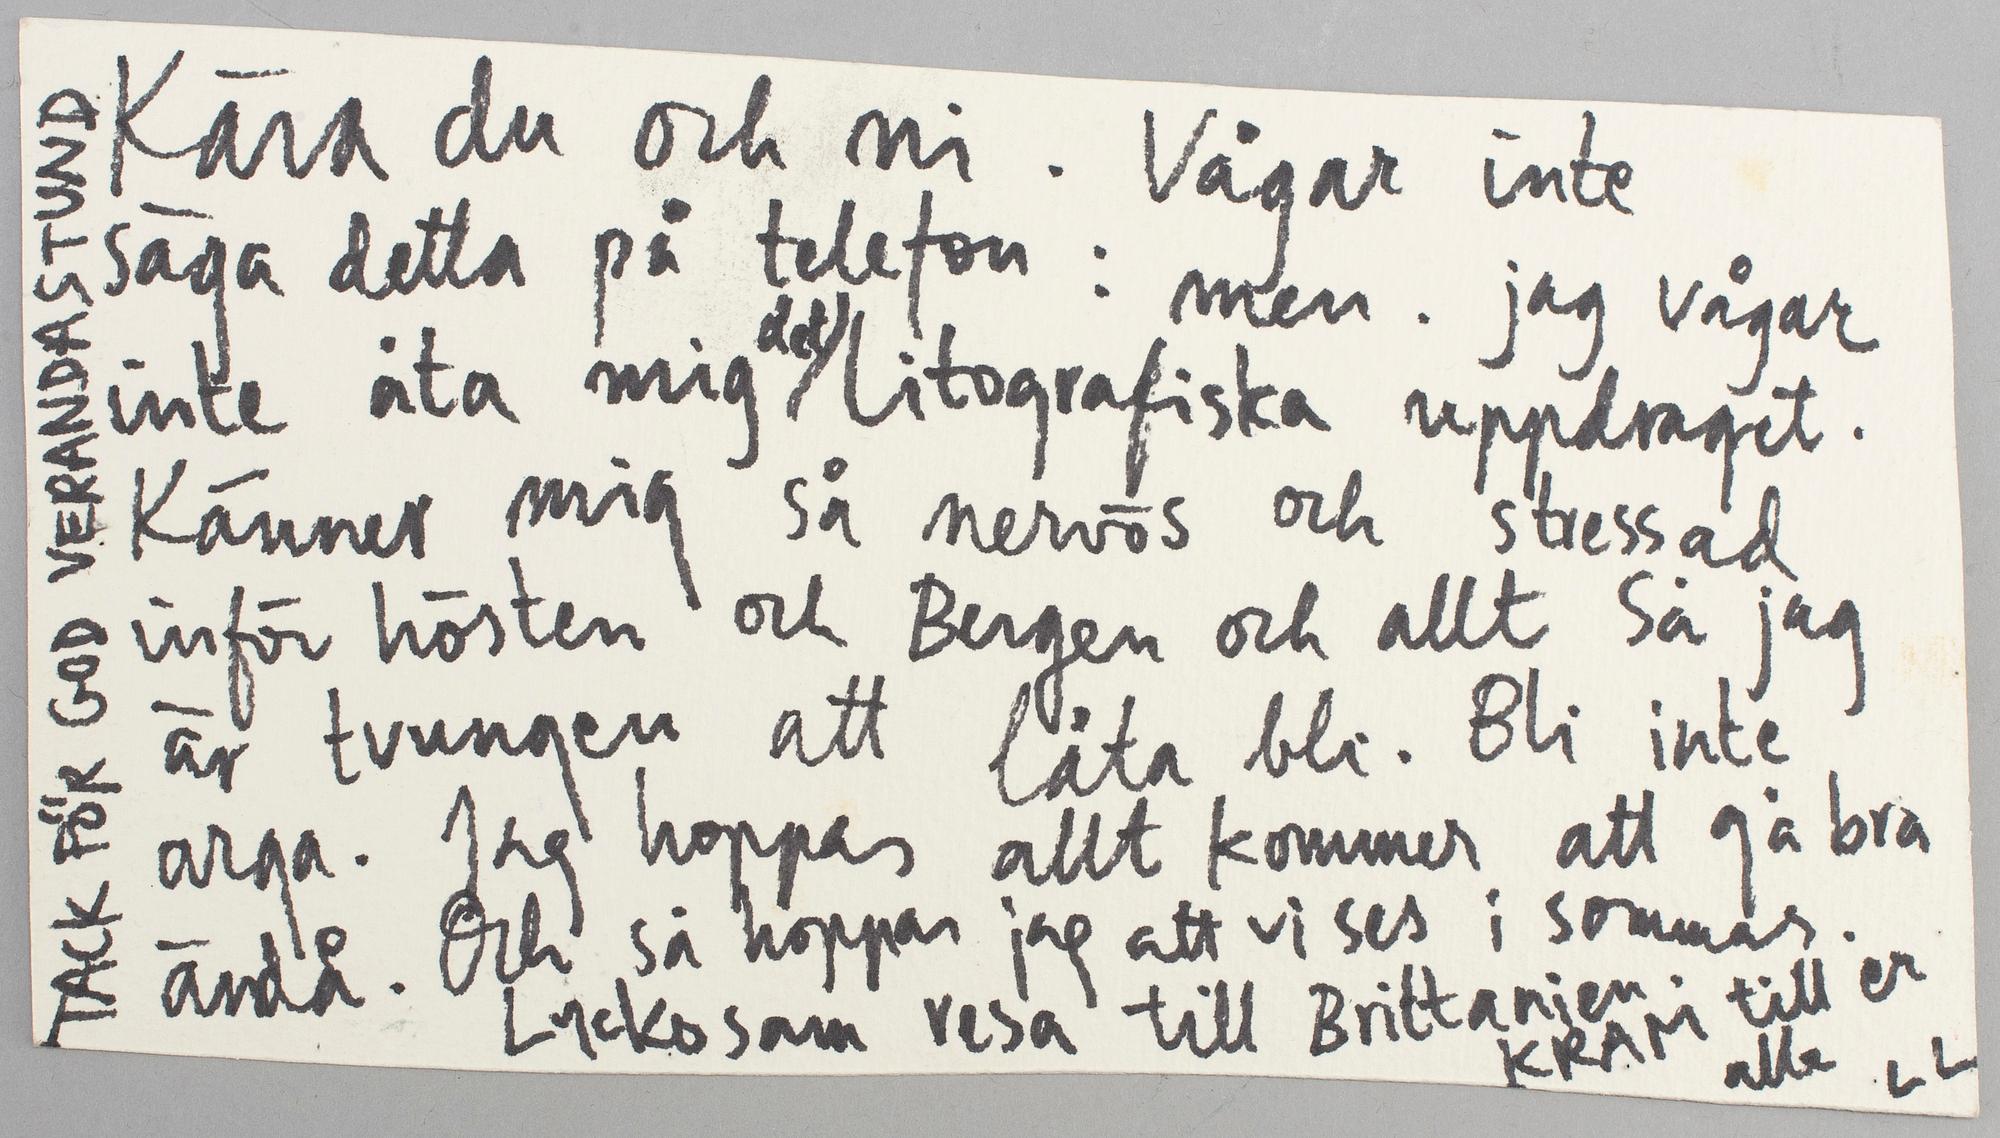 Kära du och ni. Vågar inte
säga detta på telefon: men. jag vågar
inte åta mig det litografiska uppdraget.
Känner mig så nervös och stressad
inför hösten och Bergen och allt Så jag
är tvungen att låta bli. Bli inte
arga. Jag hoppas allt kommer att gå bra
ändå. Och så hoppas jag att vi ses i sommar.
Lyckosam resa till Brittanien.
KRAM till er
alla LL
TACK FÖR GOD VERANDASTUND